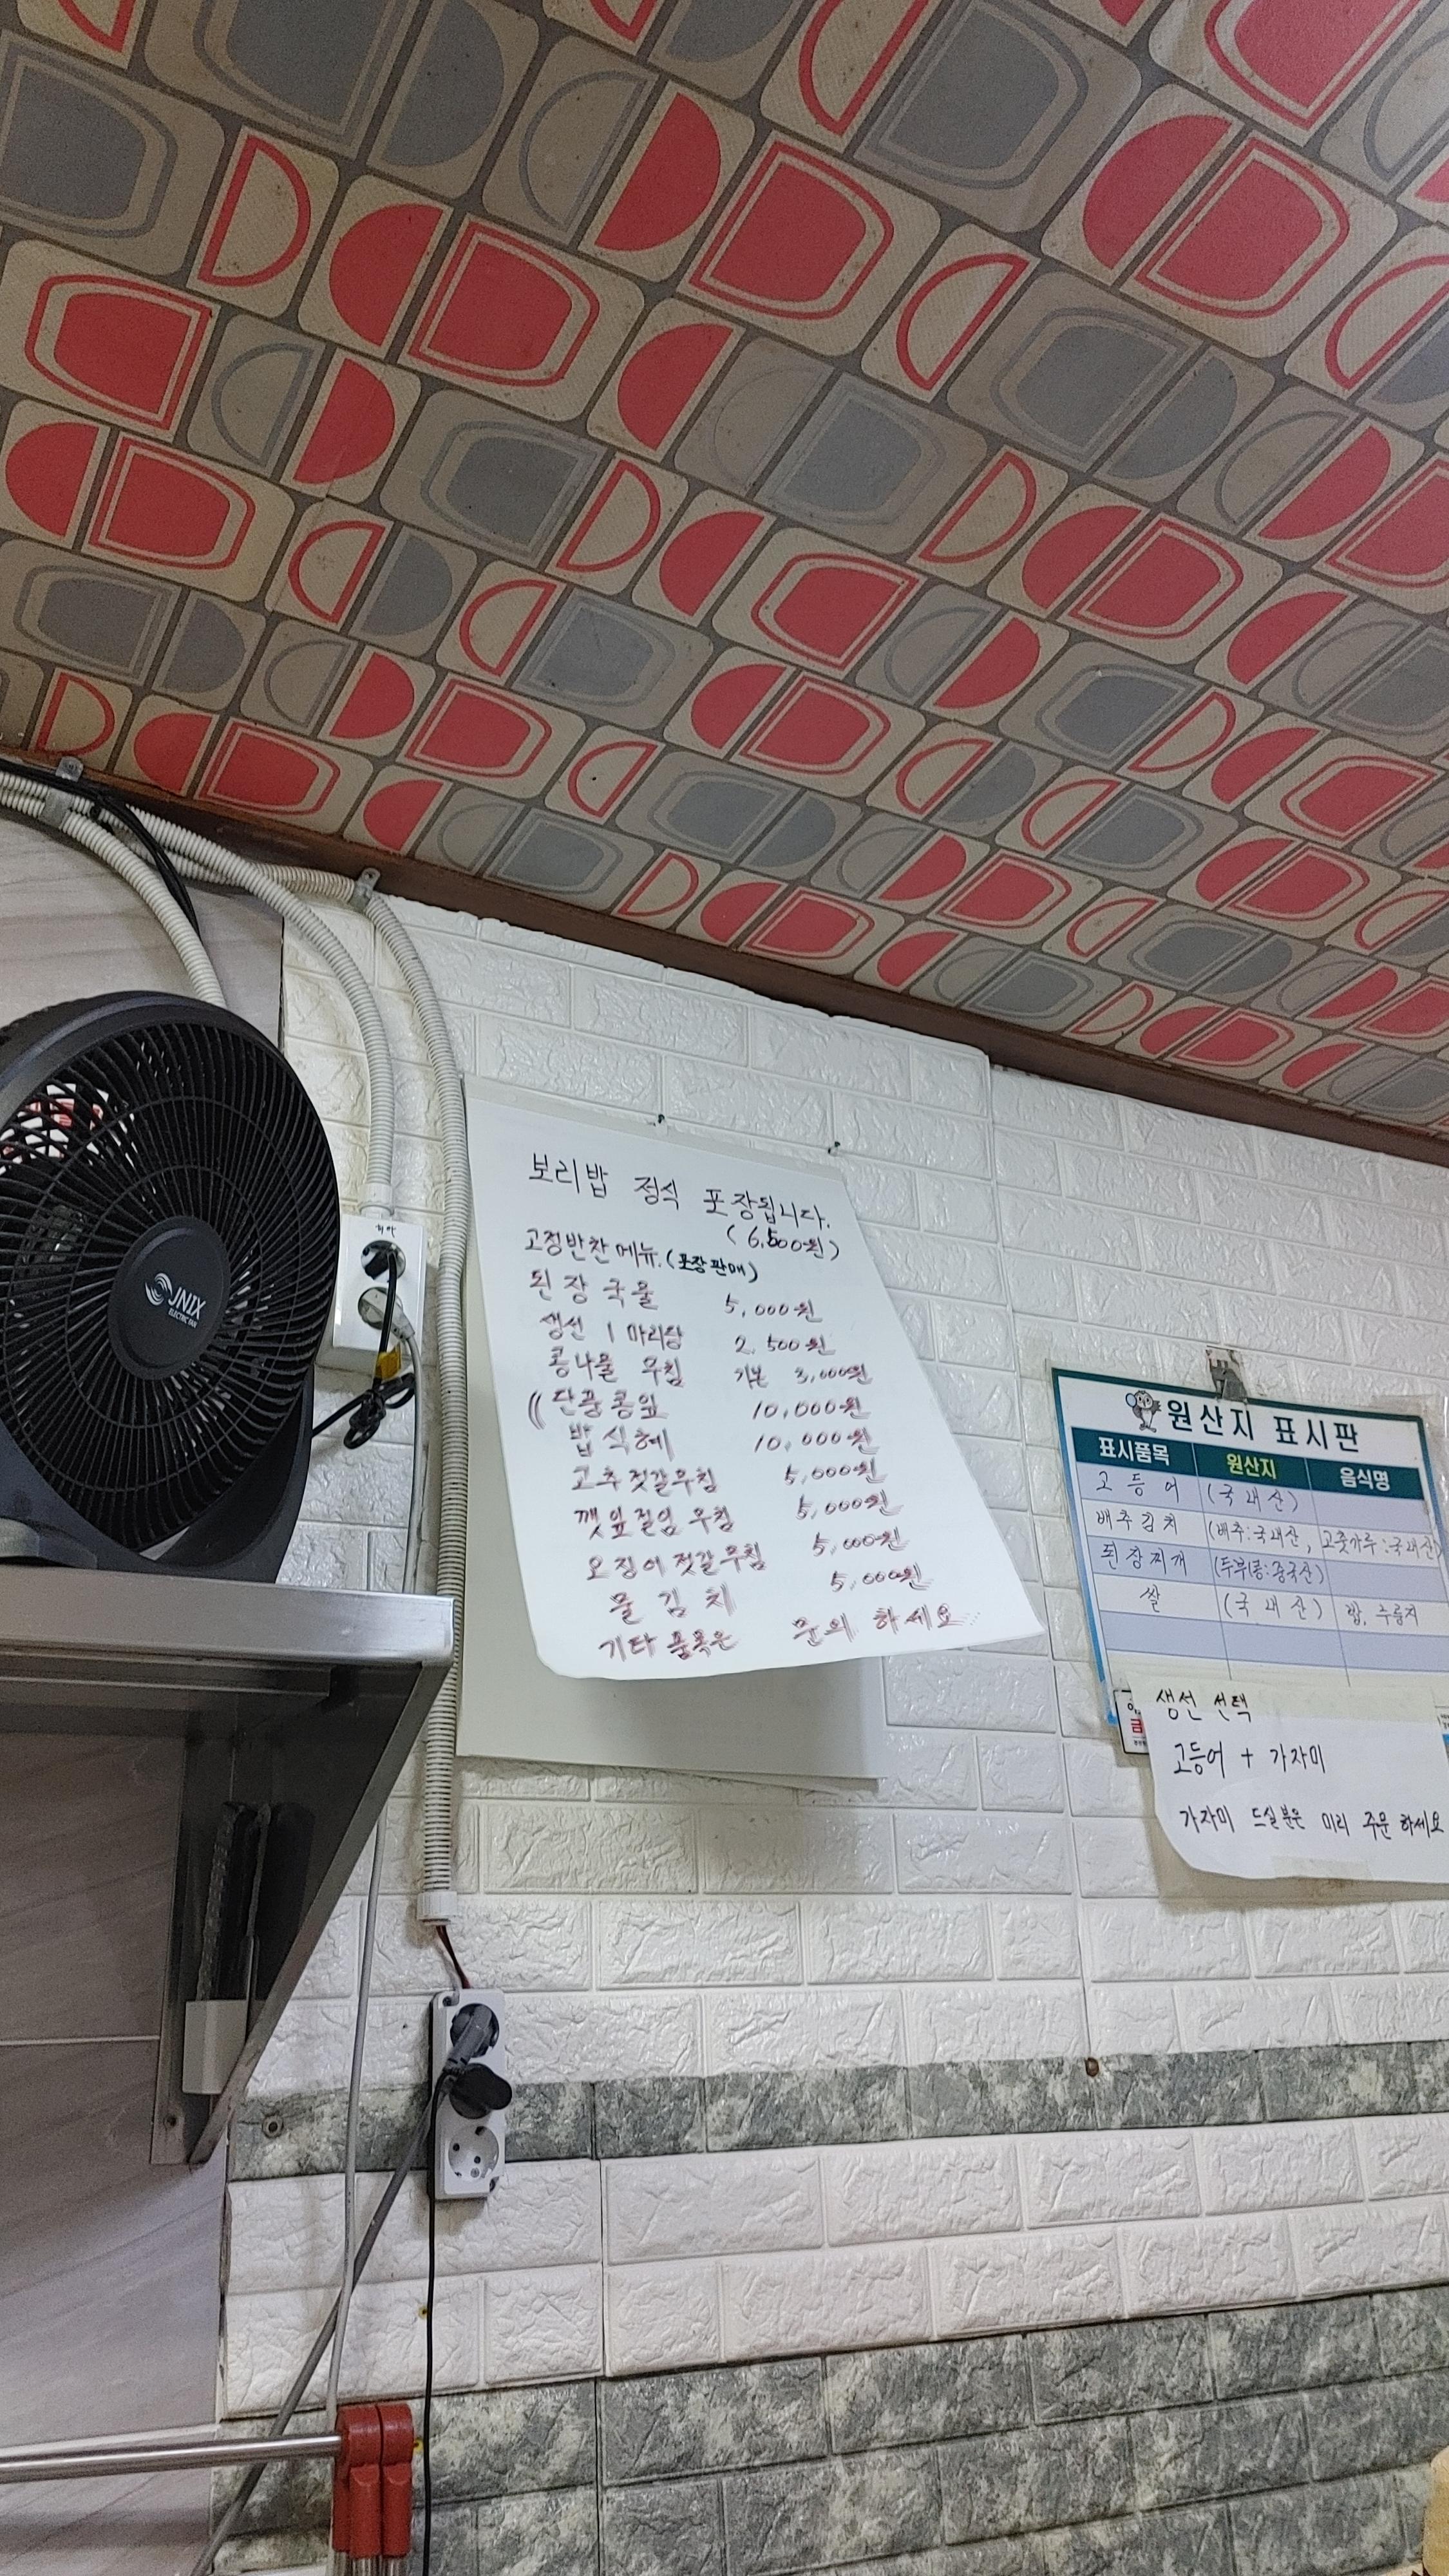 보리밥 정식 포장됩니다.
(6,500원)
고정반찬 메뉴.(포장판매)
된장국물 5,000원
생선 1마리당 2,500원
콩나물 무침 기본 3,000원
(( 단풍콩잎 10,000원
밥식혜 10,000원
고추젓갈무침 5,000원
깻잎절임무침 5,000원
오징어젓갈무침 5,000원
물김치 5,000원
기타 품목은 문의 하세요
JNIX
ELECTRIC FAN
원산지 표시판
표시품목 원산지 음식명
고등어 (국내산)
배추김치 (배추:국내산, 고춧가루:국내산)
된장찌개 (두부(콩:중국산)
쌀 (국내산) 밥, 누룽지
생선 선택
고등어 + 가자미
가자미 드실분은 미리 주문 하세요